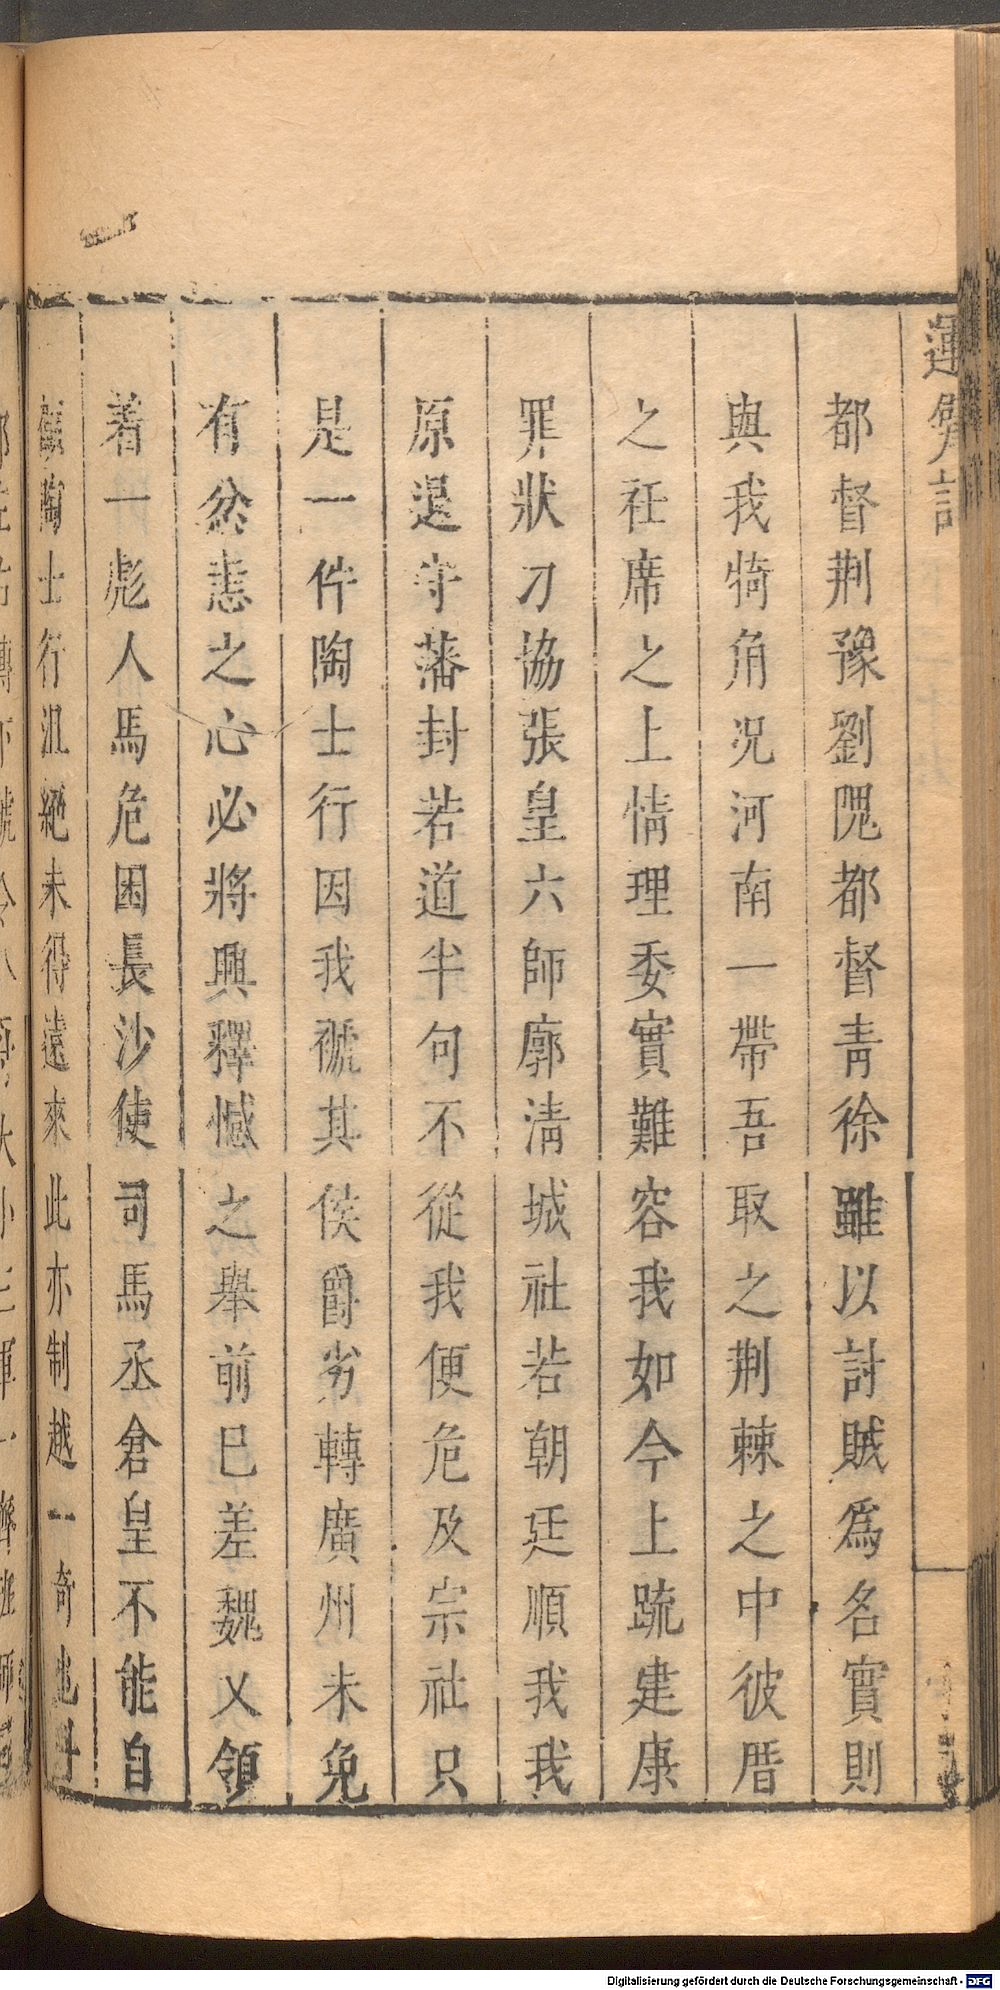 運甓記
都督荆豫劉隗都督青徐雖以討賊爲名實則
與我犄角况河南一帶吾取之荆棘之中彼厝
之衽席之上情理委實難容我如今上疏建康
罪狀刁協張皇六師廓清城社若朝廷順我我
原還守藩封若道半句不從我便危及宗社只
是一件陶士行因我褫其侯爵劣轉廣州未免
有忿恚之心必將興釋憾之舉前巳差魏乂領
着一彪人馬危困長沙使司馬丞倉皇不能自
陶士行沮絕未得遠來此亦制越一奇也
Digitalisierung gefördert durch die Deutsche Forschungsgemeinschaft - DFG